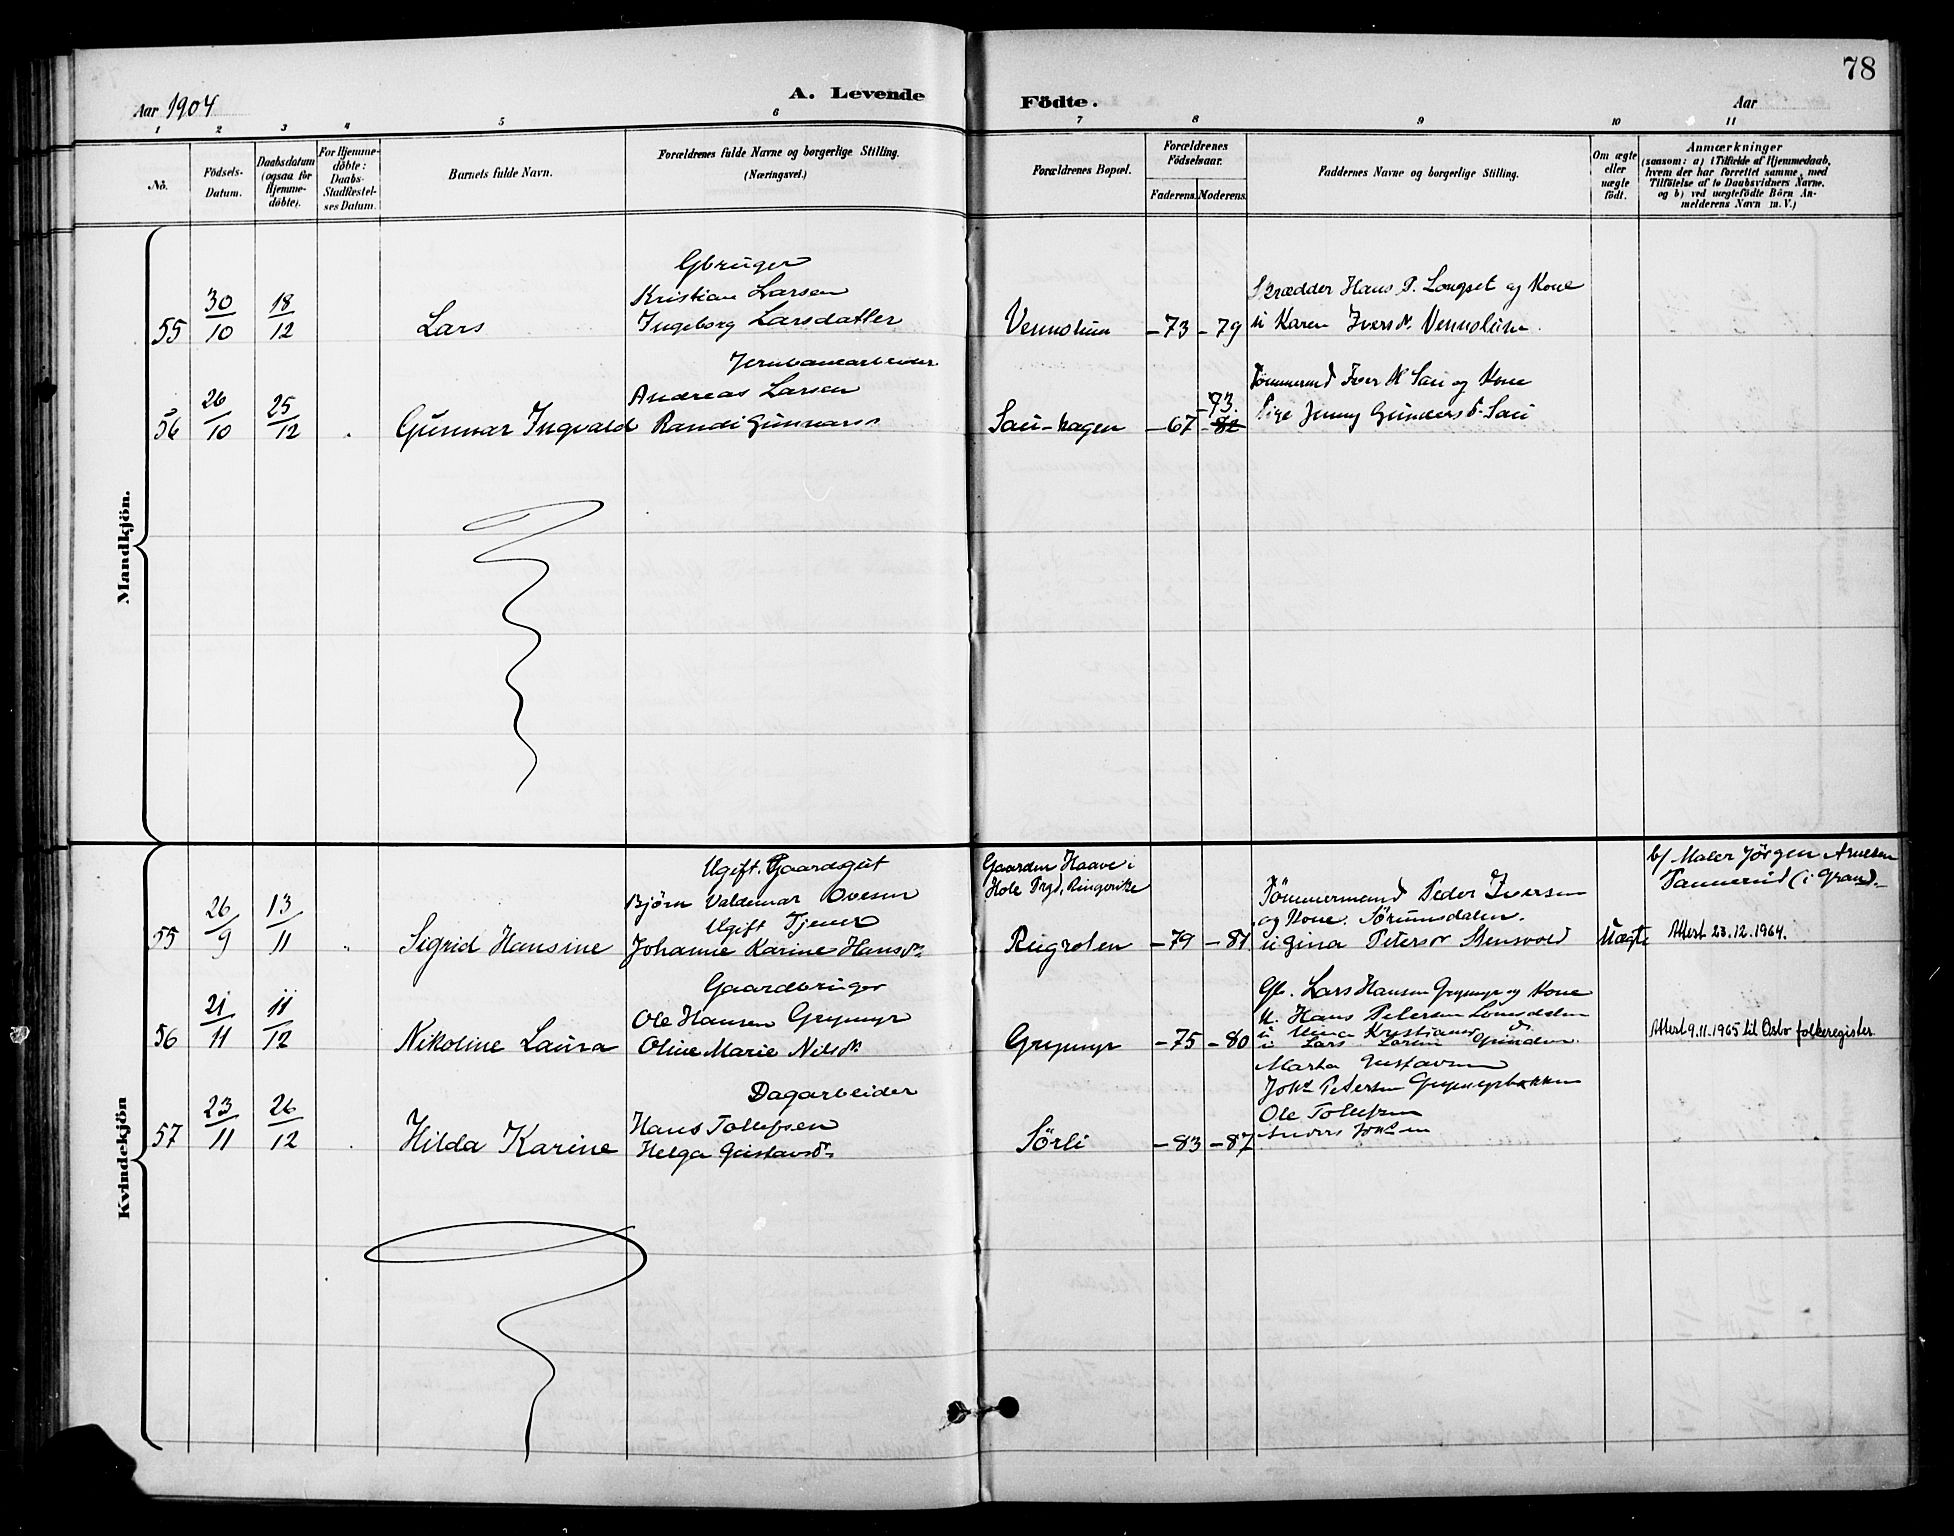 78
Aar 1904
A. Levende
Födte.
Aar
1 2 3 4 5 6 7 8 9 10 11
No.
Födsels-
Datum.
Daabsdatum
(ogsaa for
Hjemme-
döbte).
For Hjemme-
döbte:
Daabs-
Stadfæstel-
ses Datum.
Barnets fulde Navn.
Forældrenes fulde Navne og borgerlige Stilling.
(Næringsvei.)
Forældrenes Bopæl.
Forældrenes
Födselsaar.
Faderens. Moderens.
Faddernes Navne og borgerlige Stilling.
Om ægte
eller
uægte
födt.
Anmærkninger
(saasom: a) i Tilfælde af Hjemmedaab,
hvem der har forrettet samme, med
Tilföielse af to Daabsvidners Navne,
og b) ved uægtefödte Börn An-
melderens Navn m. V.)
Mandkjön.
Gbruger
Kristian Larsen
Skrædder Hans P. Longset og Kone
55 30/10 18/12 Lars Ingeborg Larsdatter Vennolum -73 -79 u Karen Iversd. Vennolum.
Jernbanearbeider
Andreas Larsen
Tömmermd Iver H Sau og Kone
-73.
56 26/10 25/12 Gunnar Ingvald Randi Gunnars Sau-hagen -67 -82 Pige Jenny Gunders d. Sau
Kvindekjön
Ugift. Gaardgut
Gaarden Haave i
b/ Maler Jörgen Arnesen
Björn Valdemar Ovesen
Hole Prgd, Ringerike
Tömmermand Peder Iversen
Pannerud (i Gran).
Ugift Tjener
og Kone. Sörumsdalen.
55 26/9 13/11 Sigrid Hansine Johanne Karine Hansd. Rugroten -79 -81 u Gina Petersd Stensvold Uægte Attest 23.12.1964.
Gaardbruger
Gb. Lars Hansen Grymyr og Kone
Ole Hansen Grymyr
u. Hans Petersen
56 21/11 11/12 Nikoline Laura Oline Marie Nilsd. Grymyr -75 -80 Attest 9.11.1965 til Oslo folkeregister
Marta Gustavsen
Dagarbeider
Johs Petersen Grymyrbakken
Hans Tollefsen
Ole Tollefsen
57 23/11 26/12 Hilda Karine Helga Gustavsd. Sörli -83 -87 Anders Johsen